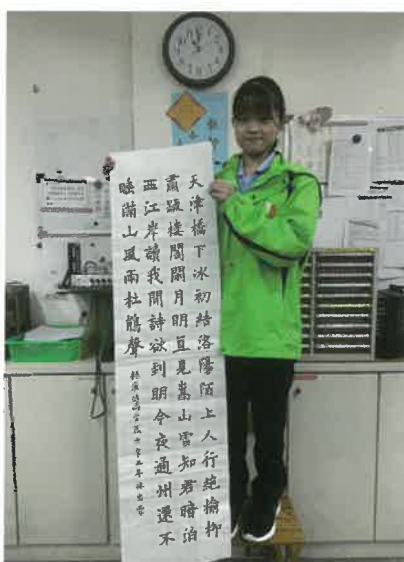 天津橋下冰初結洛陽陌上人行絕榆柳
蕭疏樓閣閑月明直見嵩山雪知君暗泊
西江岸讀我閑詩欲到明今夜通州還不
睡滿山風雨杜鵑聲